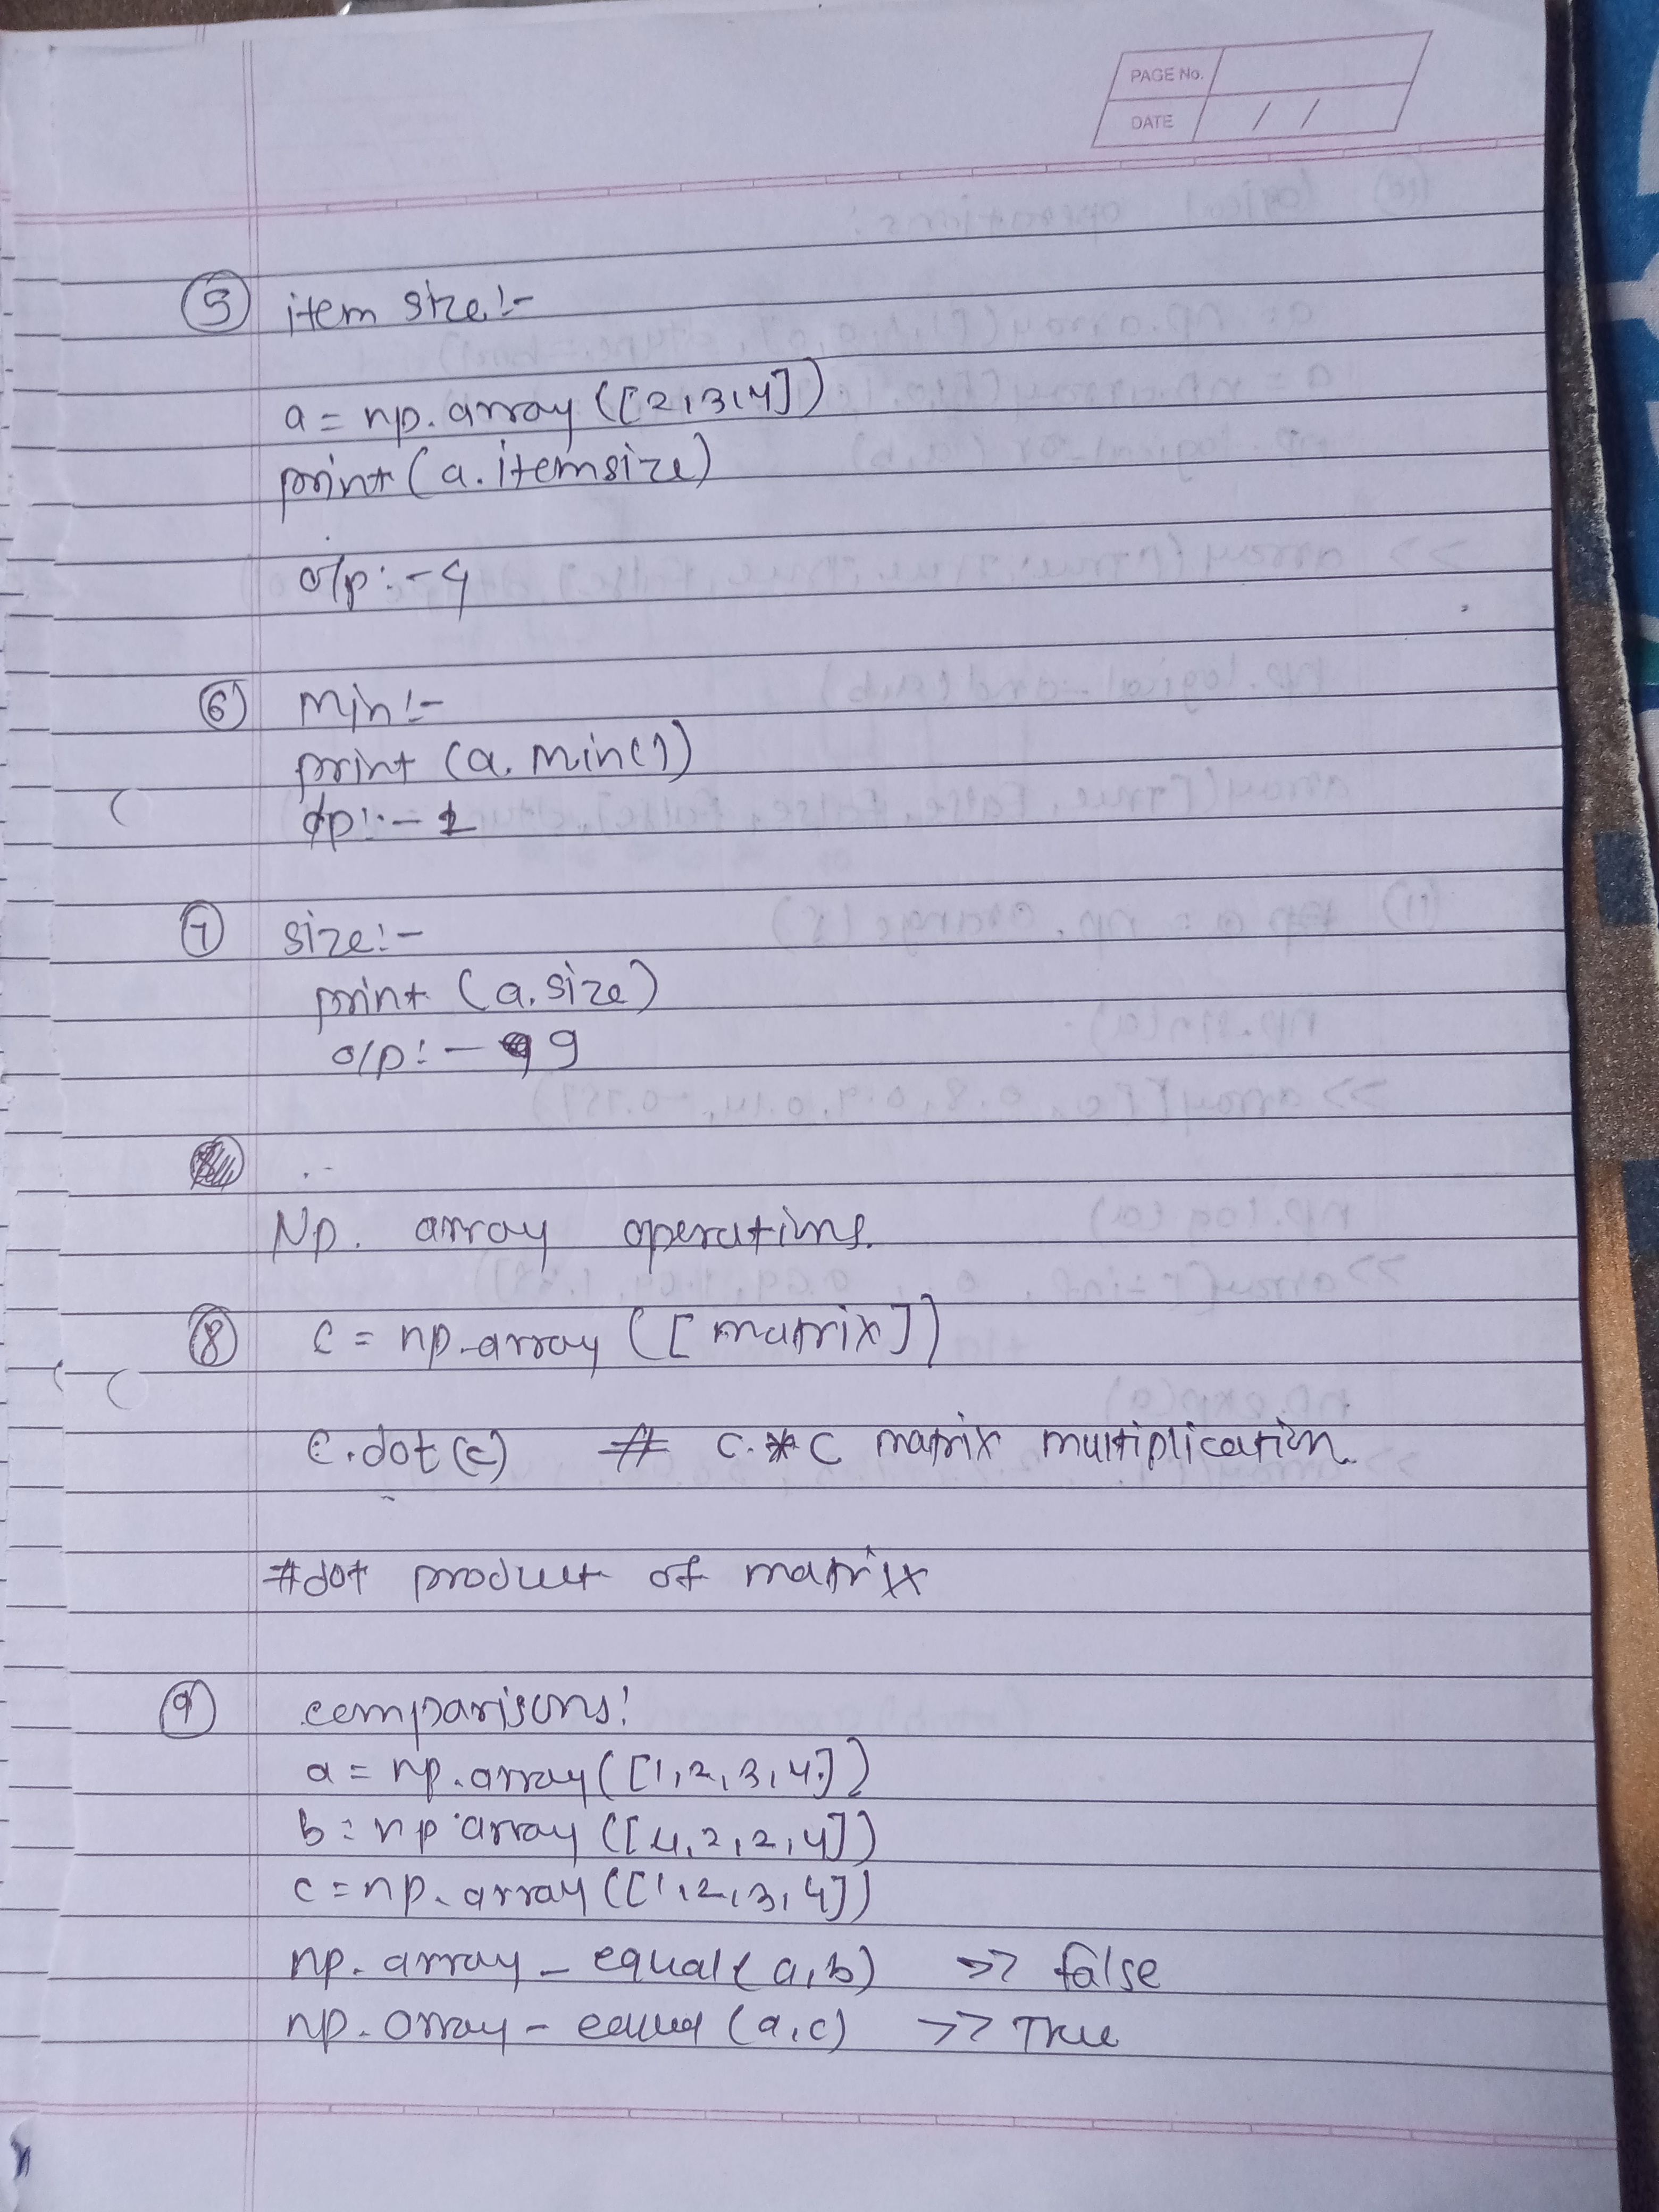 PAGE No.
DATE / /
5 item size:-
a = np.array([2,3,4])
print(a.itemsize)
o/p:-4
6 Min:-
print (a.min())
o/p:- 1
7 size:-
print (a.size)
o/p:- 9
Np. array operations.
8 c = np.array ([matrix])
c.dot(c) # c.*c matrix multiplication
#dot product of matrix
9 comparisons:
a = np.array([1,2,3,4])
b = np.array([4,2,2,4])
c = np.array([1,2,3,4])
np.array_equal(a,b) >> false
np.array-equal(a,c) >> True